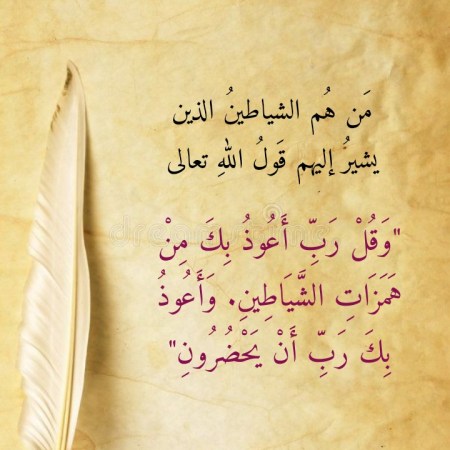 مَن هُم الشياطينُ الذين
يشيرُ إليهم قَولُ اللهِ تعالى
"وَقُلْ رَبِّ أَعُوذُ بِكَ مِنْ
هَمَزَاتِ الشَّيَاطِينِ. وَأَعُوذُ
بِكَ رَبِّ أَنْ يَحْضُرُونِ"